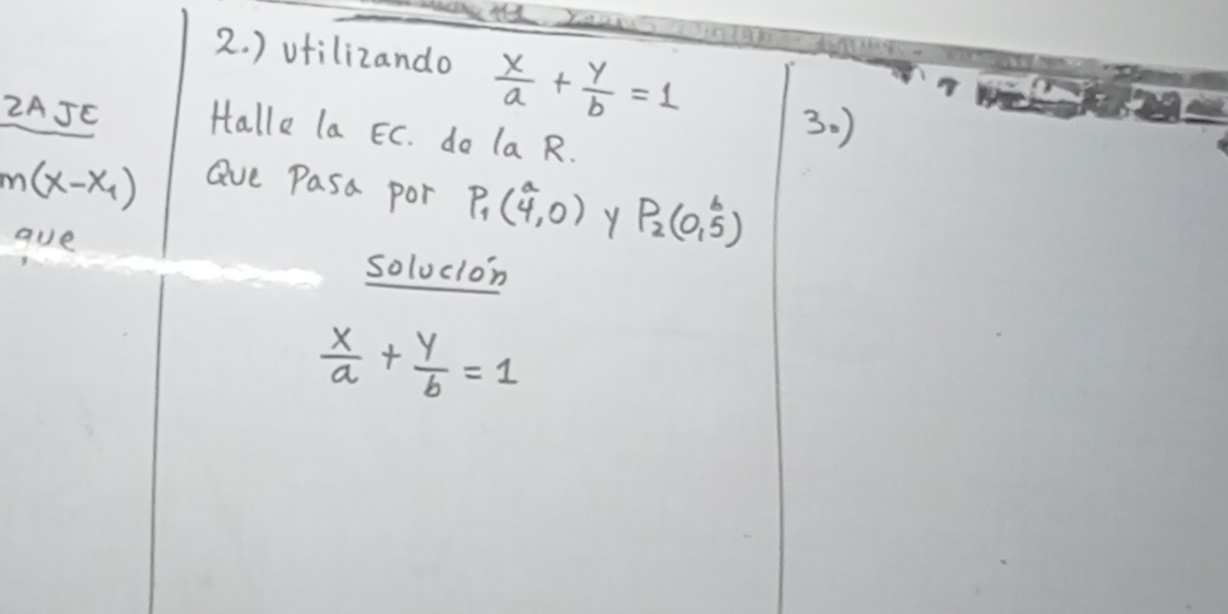 ZAJE
m(x-x₁)
que
2.) utilizando x/a + y/b = 1
Halle la EC. de la R.
Que Pasa por P₁(4,0) y P₂(0,5)
a b
Solución
x/a + y/b = 1
3.)